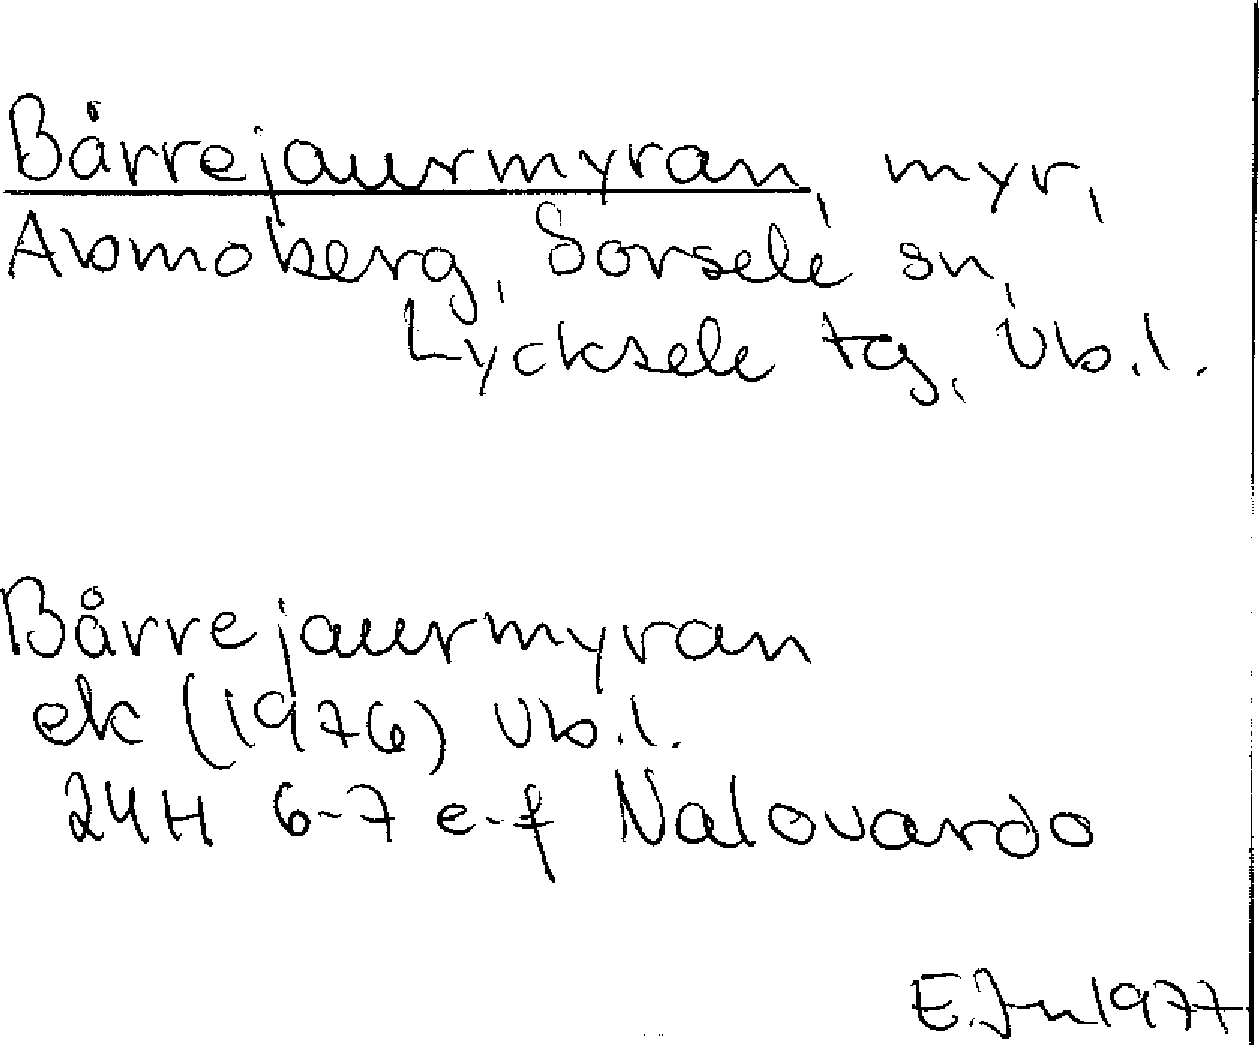 Bårrejaurmyran, myr,
Abmoberg, Sorsele sn,
Lycksele tg, Vb.l.
Bårrejaurmyran
ek (1976) Vb.l.
24H 6-7 e-f Nalovardo
E.Jn 1977